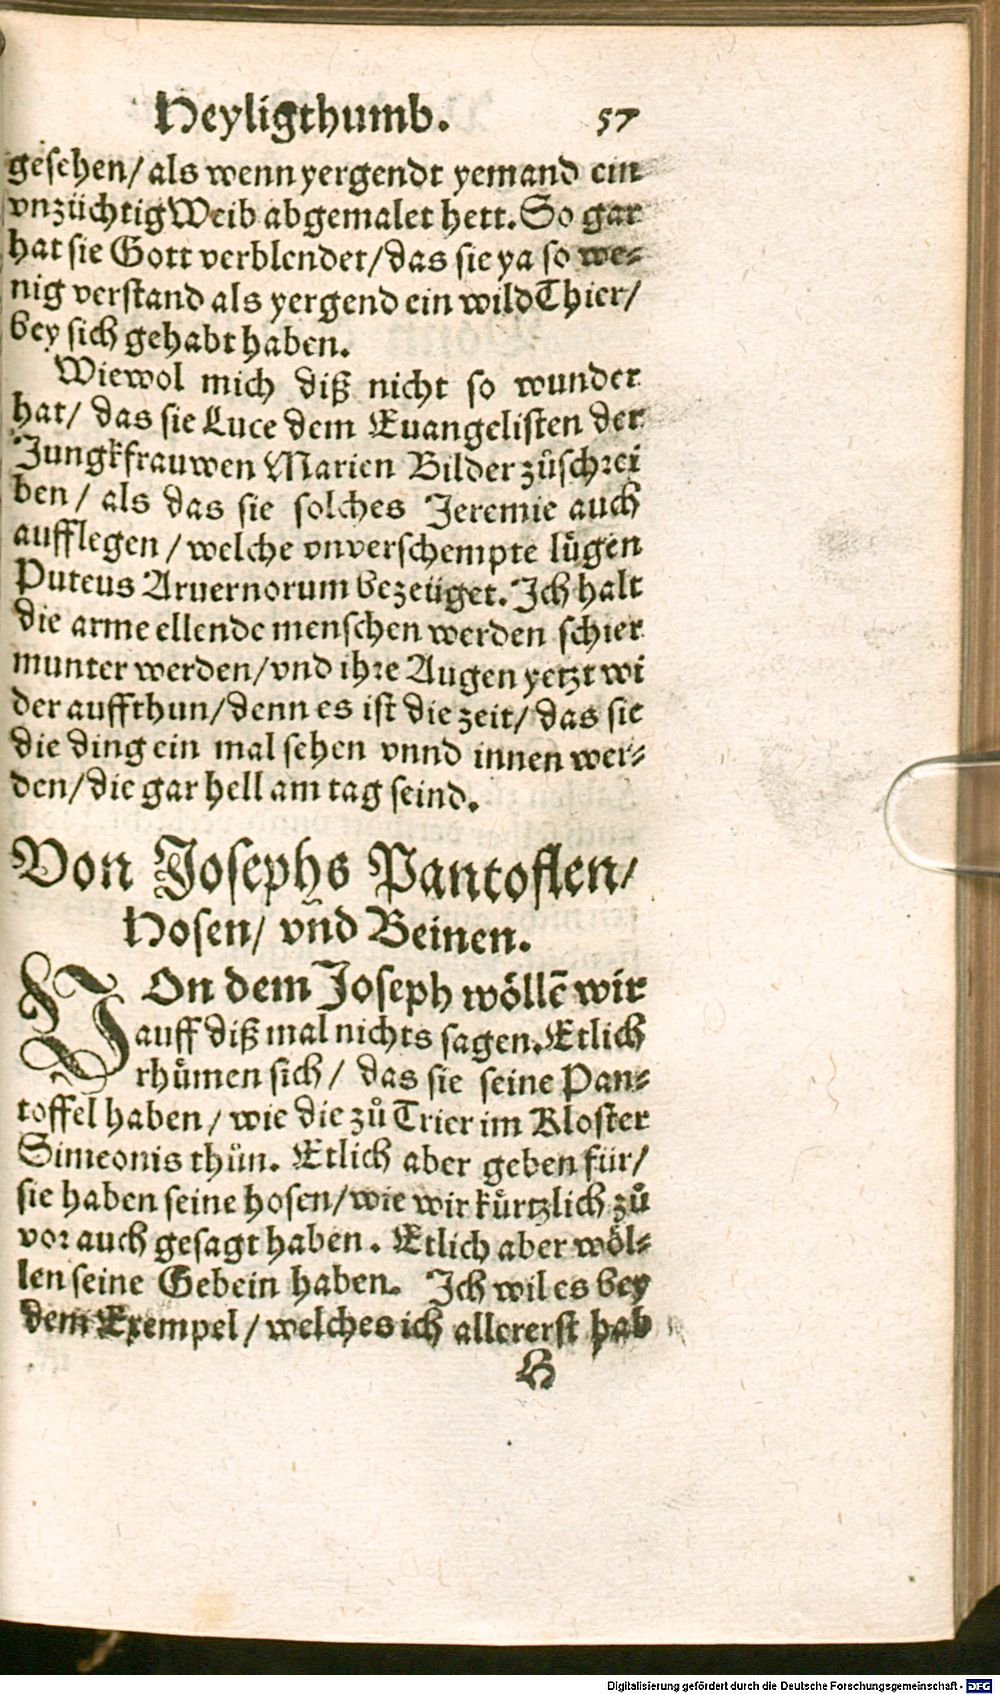 Heyligthumb. 57
gesehen/ als wenn yergendt yemand ein
vnzüchtig Weib abgemalet hett. So gar
hat sie Gott verblendet/ das sie ya so we-
nig verstand als yergend ein wild Thier/
bey sich gehabt haben.
Wiewol mich diß nicht so wunder
hat/ das sie Luce dem Euangelisten der
Jungkfrauwen Marien Bilder zůschrei
ben/ als das sie solches Jeremie auch
aufflegen/ welche vnverschempte lügen
Puteus Aruernorum bezeüget. Ich halt
die arme ellende menschen werden schier
munter werden/ vnd ihre Augen yetzt wi
der auffthun/ denn es ist die zeit/ das sie
die ding ein mal sehen vnnd innen wer-
den/ die gar hell am tag seind.
Von Josephs Pantoflen/
Hosen/ vñd Beinen.
VOn dem Joseph wöllē wir
auff diß mal nichts sagen. Etlich
rhůmen sich/ das sie seine Pan-
toffel haben/ wie die zů Trier im Kloster
Simeonis thůn. Etlich aber geben für/
sie haben seine hosen/ wie wir kürtzlich zů
vor auch gesagt haben. Etlich aber wöl-
len seine Gebein haben. Ich wil es bey
dem Exempel/ welches ich allererst hab
H
Digitalisierung gefördert durch die Deutsche Forschungsgemeinschaft - DFG